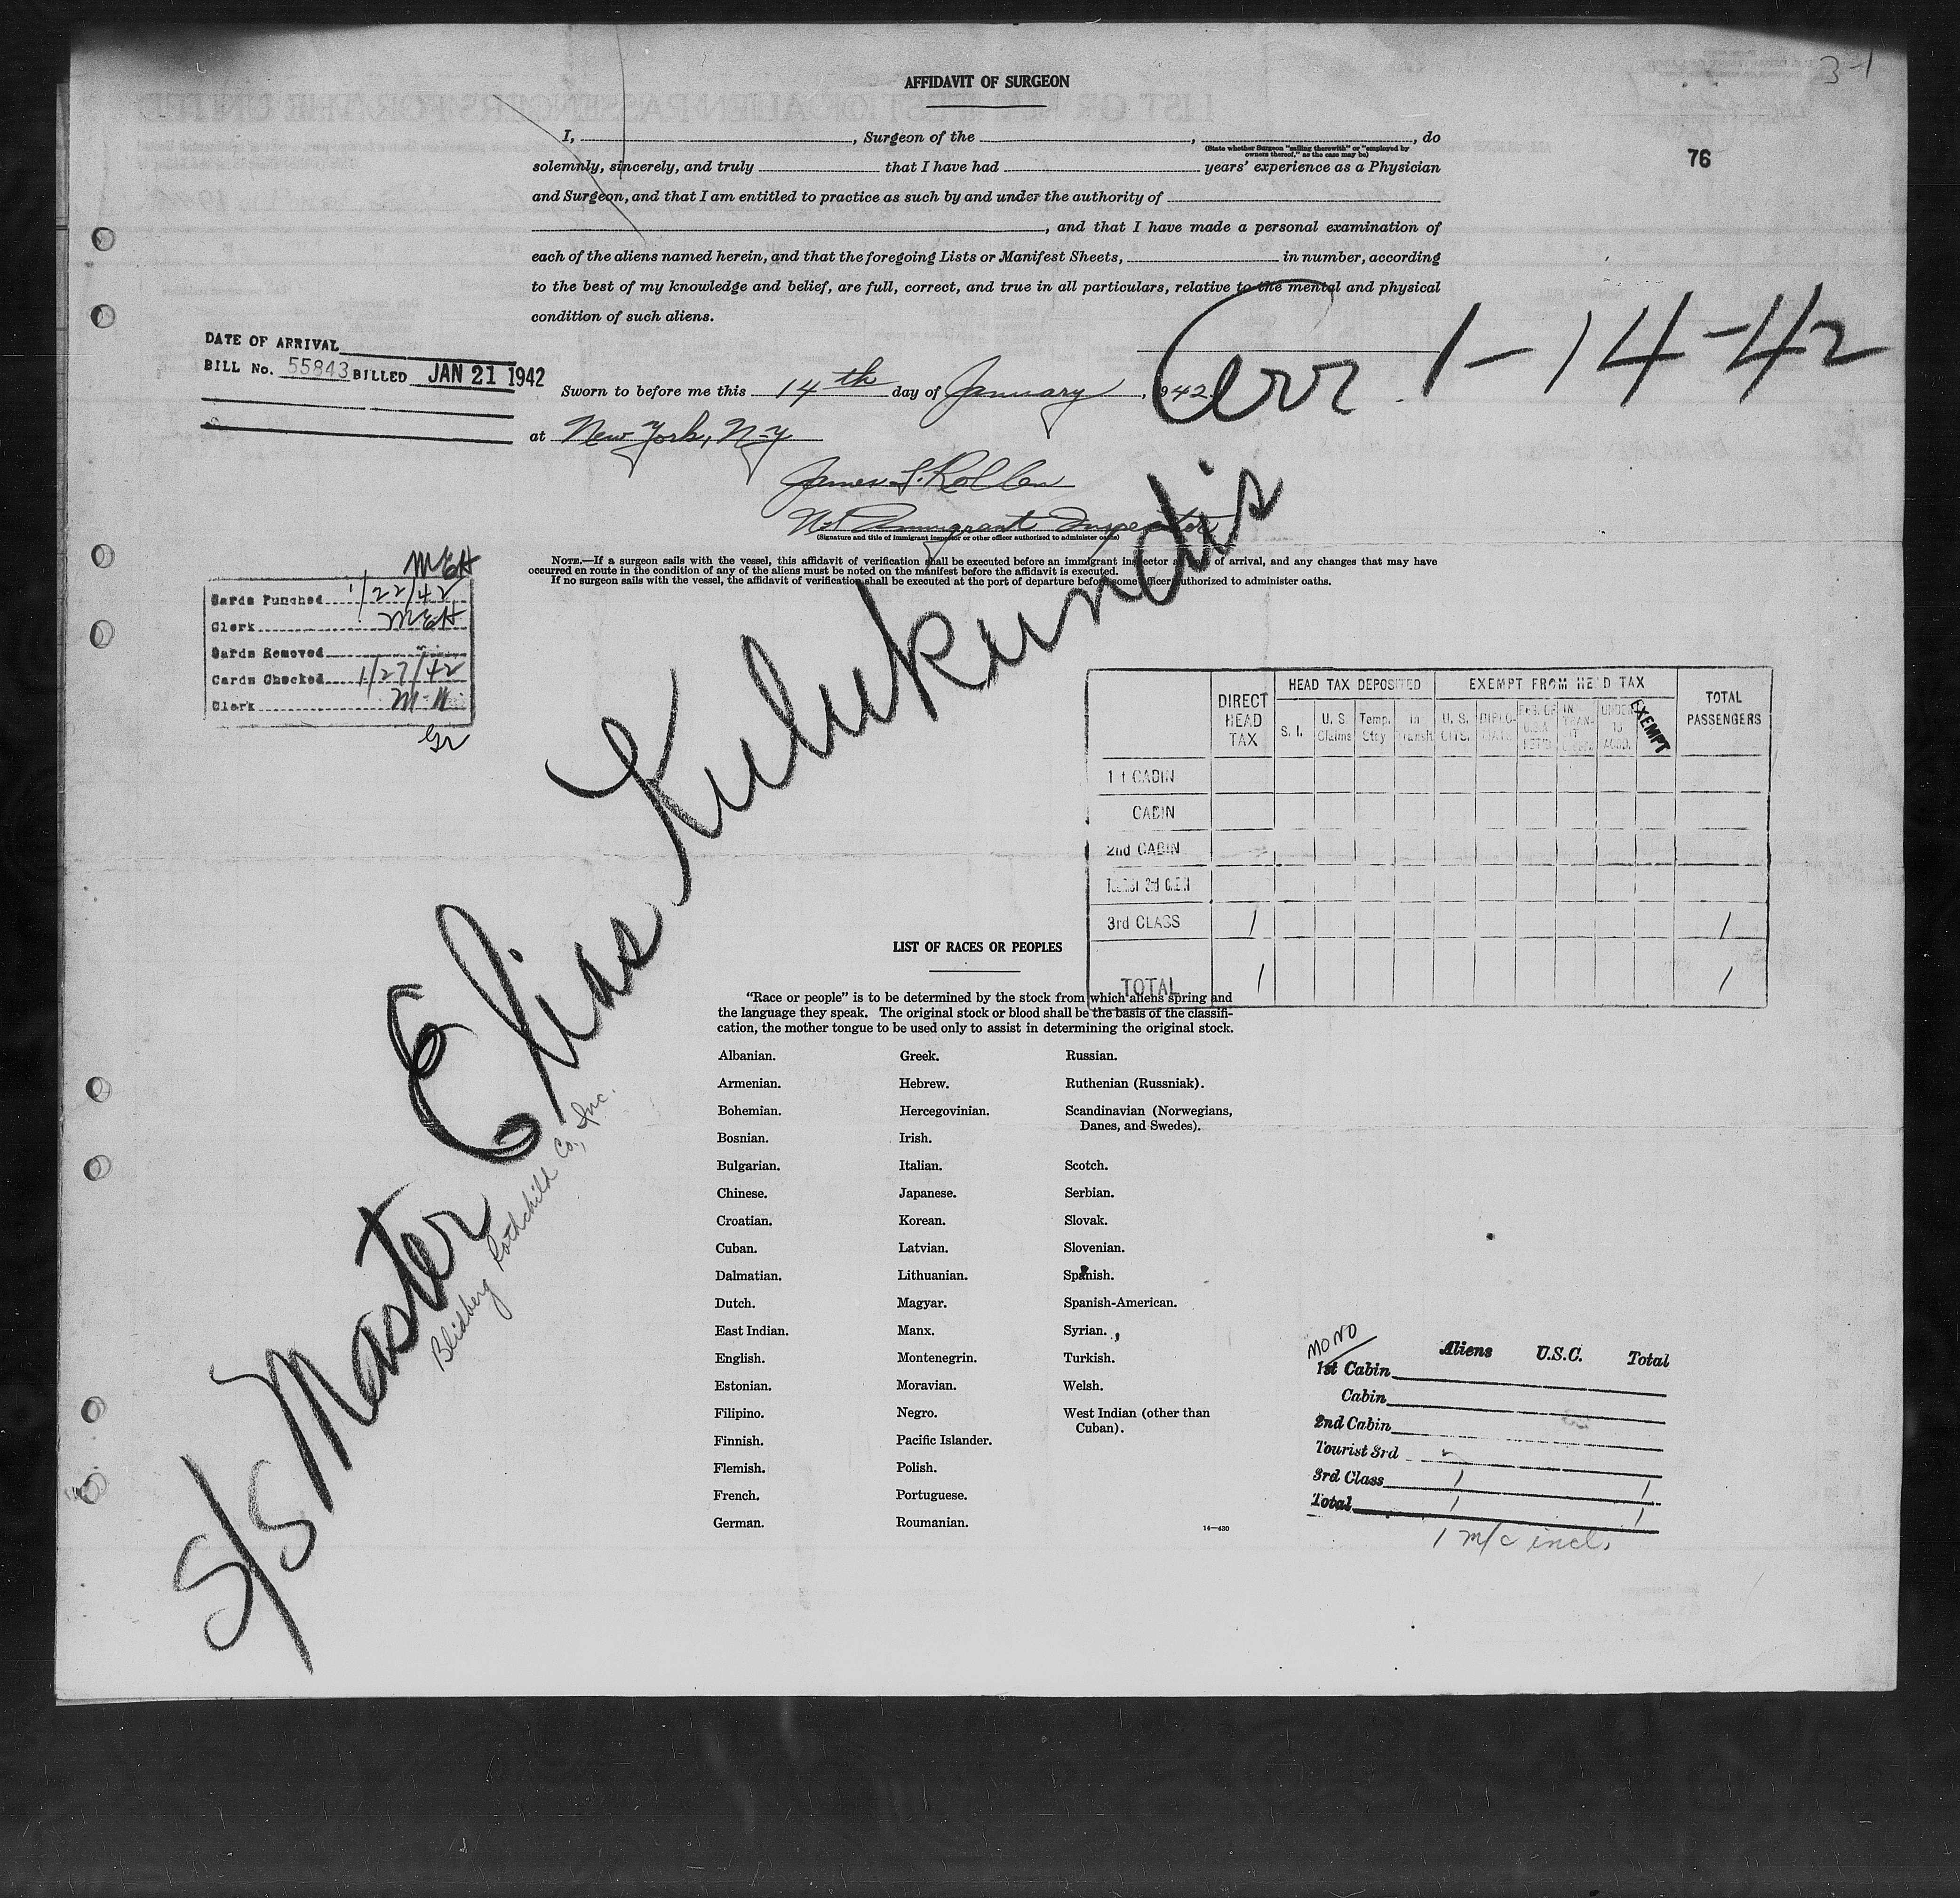 3-1
AFFIDAVIT OF SURGEON
76
I, , Surgeon of the , , do
(State whether Surgeon "sailing therewith" or "employed by
owners thereof," as the case may be)
solemnly, sincerely, and truly that I have had years' experience as a Physician
and Surgeon, and that I am entitled to practice as such by and under the authority of
, and that I have made a personal examination of
each of the aliens named herein, and that the foregoing Lists or Manifest Sheets, in number, according
to the best of my knowledge and belief, are full, correct, and true in all particulars, relative to the mental and physical
condition of such aliens.
Arr. 1-14-42
DATE OF ARRIVAL
BILL No. 55843 BILLED JAN 21 1942
Sworn to before me this 14th day of January, 1942
at New York, N.Y.
James
Immigrant Inspector
(Signature and title of immigrant inspector or other officer authorized to administer oaths)
NOTE.—If a surgeon sails with the vessel, this affidavit of verification shall be executed before an immigrant inspector of arrival, and any changes that may have
occurred en route in the condition of any of the aliens must be noted on the manifest before the affidavit is executed.
If no surgeon sails with the vessel, the affidavit of verification shall be executed at the port of departure before some officer authorized to administer oaths.
MEH
Cards Punched 1/22/42
Clerk MEH
Cards Removed
Cards Checked 1/27/42
Clerk
S/S Master Elias Kulukundis
Blidberg Rothchild Co., Inc.
DIRECT HEAD TAX
HEAD TAX DEPOSITED
EXEMPT FROM HEAD TAX
TOTAL PASSENGERS
S. I.
U. S. Claims
Temp. Stay
In Transit
U. S. CITS.
DIPLO-MATS
UNDER 16 ACCD.
EXEMPT
1st CABIN
CABIN
2nd CABIN
3rd CLASS 1 1
TOTAL 1 1
LIST OF RACES OR PEOPLES
"Race or people" is to be determined by the stock from which aliens spring and
the language they speak. The original stock or blood shall be the basis of the classifi-
cation, the mother tongue to be used only to assist in determining the original stock.
Albanian.
Armenian.
Bohemian.
Bosnian.
Bulgarian.
Chinese.
Croatian.
Cuban.
Dalmatian.
Dutch.
East Indian.
English.
Estonian.
Filipino.
Finnish.
Flemish.
French.
German.
Greek.
Hebrew.
Hercegovinian.
Irish.
Italian.
Japanese.
Korean.
Latvian.
Lithuanian.
Magyar.
Manx.
Montenegrin.
Moravian.
Negro.
Pacific Islander.
Polish.
Portuguese.
Roumanian.
Russian.
Ruthenian (Russniak).
Scandinavian (Norwegians,
Danes, and Swedes).
Scotch.
Serbian.
Slovak.
Slovenian.
Spanish.
Spanish-American.
Syrian.
Turkish.
Welsh.
West Indian (other than
Cuban).
14—430
MONO
Aliens U.S.C. Total
1st Cabin
Cabin
2nd Cabin
Tourist 3rd
3rd Class 1 1
Total 1 1
1 m/c incl.